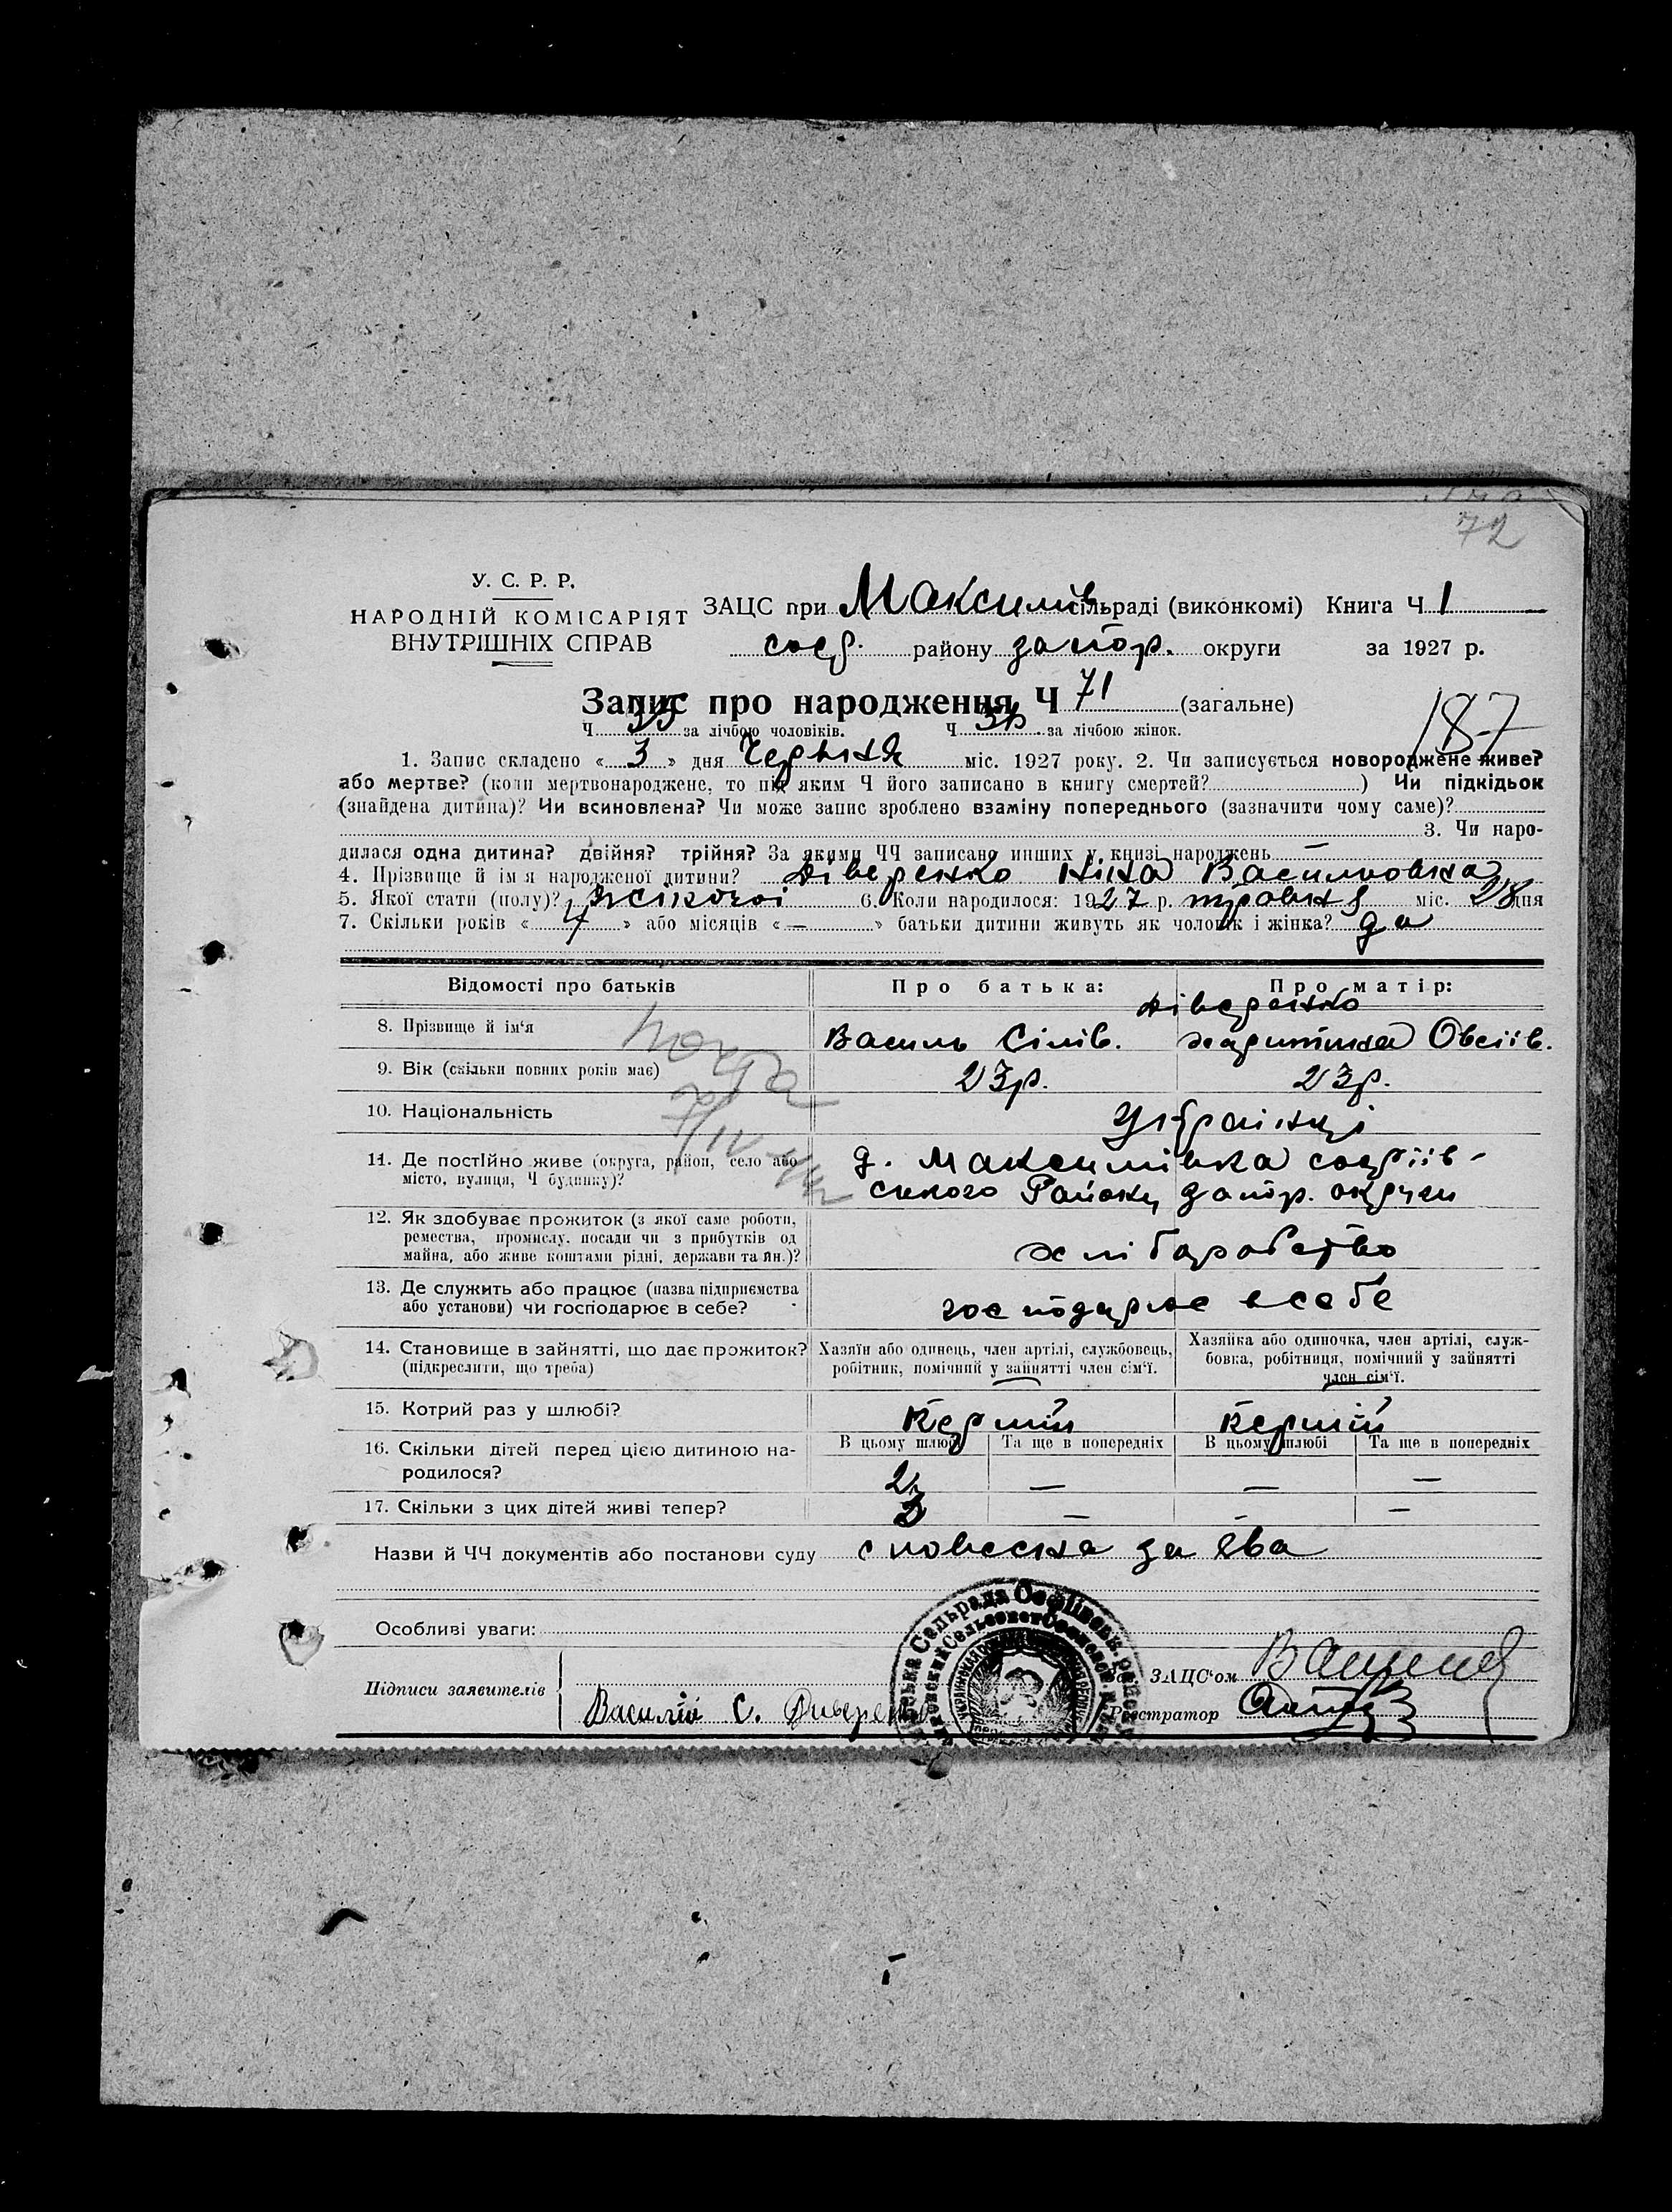 72
У. С. Р. Р.
НАРОДНІЙ КОМІСАРІЯТ
ВНУТРІШНІХ СПРАВ
ЗАЦС при Максимів сільраді (виконкомі) Книга Ч 1
соф. району запор. округи за 1927 р.
Запис про народження Ч 71 (загальне)
Ч за лічбою чоловіків. Ч за лічбою жінок.
187
1. Запис складено « 3 » дня Червня міс. 1927 року. 2. Чи записується новороджене живе?
або мертве? (коли мертвонароджене, то під яким Ч його записано в книгу смертей? ) Чи підкідьок
(знайдена дитина)? Чи всиновлена? Чи може запис зроблено взаміну попереднього (зазначити чому саме)?
3. Чи наро-
дилася одна дитина? двійня? трійня? За якими ЧЧ записано инших у книзі народжень —
4. Прізвище й ім'я народженої дитини? Діверенко Ніна Василиовна
5. Якої стати (полу)? жіночоі 6. Коли народилося: 1927 р. травня міс. 28 дня
7. Скільки років « 4 » або місяців « — » батьки дитини живуть як чоловік і жінка? да
Відомості про батьків Про батька: Про матір:
Діверенко
8. Прізвище й ім'я Василь Сілів. Харитина Овсіів.
9. Вік (скільки повних років має) 23р. 23р.
10. Національність Українці
11. Де постійно живе (округа, район, село або місто, вулиця, Ч будинку)? д. Максимівка софіів-
ського Району запор. округи
12. Як здобуває прожиток (з якої саме роботи,
ремества, промислу, посади чи з прибутків од
майна, або живе коштами рідні, держави та йн.)? хліборобство
13. Де служить або працює (назва підприємства
або установи) чи господарює в себе? господарює в себе
14. Становище в зайнятті, що дає прожиток?
(підкреслити, що треба)
Хазяїн або одинець, член артілі, службовець,
робітник, помічний у зайнятті член сім'ї.
Хазяйка або одиночка, член артілі, служ-
бовка, робітниця, помічний у зайнятті
член сім'ї.
15. Котрий раз у шлюбі? Перший Перший
16. Скільки дітей перед цією дитиною на-
родилося?
В цьому шлюбі Та ще в попередніх В цьому шлюбі Та ще в попередніх
2 — — —
17. Скільки з цих дітей живі тепер? — — —
Назви й ЧЧ документів або постанови суду словесна заява
Особливі уваги:
Підписи заявителів Василій С. Дивере
ЗАЦС'ом
Реєстратор